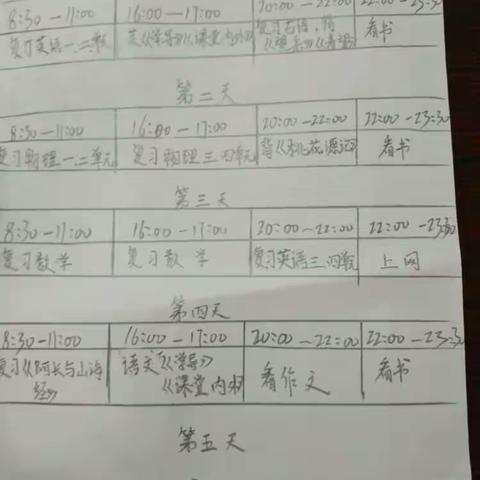 8:30 —11:00 16:00 —17:00 20:00 — 22:00 22:00 —23:30
复习英语一、二单元 英《学导》《课堂内外》 复习古诗，背 看书
第二天
8:30 —11:00 16:00 — 17:00 20:00 —22:00 22:00 —23:30
复习物理一、二单元 复习物理三、四单元 背《桃花源记》 看书
第三天
8:30 —11:00 16:00 — 17:00 20:00 —22:00 22:00 —23:30
复习数学 复习数学 复习英语三、四单元 上网
第四天
8:30 —11:00 16:00 — 17:00 20:00 —22:00 22:00 —23:30
复习《阿长与山海 语文《学导》 看作文 看书
经》 《课堂内外》
第五天